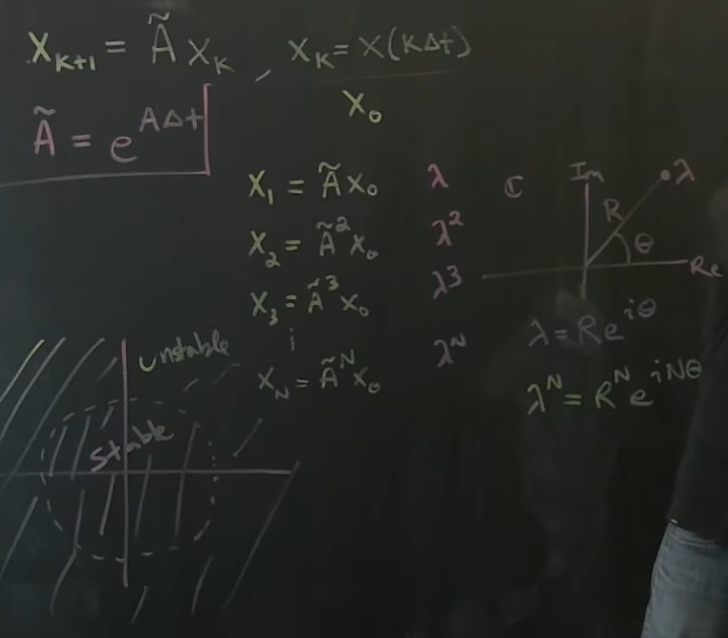 X_{k+1} = Ã X_k , X_k = X(kΔt)
Ã = e^{AΔt}
X_0
X_1 = Ã X_0 λ
X_2 = Ã^2 X_0 λ^2
X_3 = Ã^3 X_0 λ^3
⋮
X_N = Ã^N X_0 λ^N
ℂ Im λ
R θ
Re
λ = Re^{iθ}
λ^N = R^N e^{iNθ}
unstable
stable